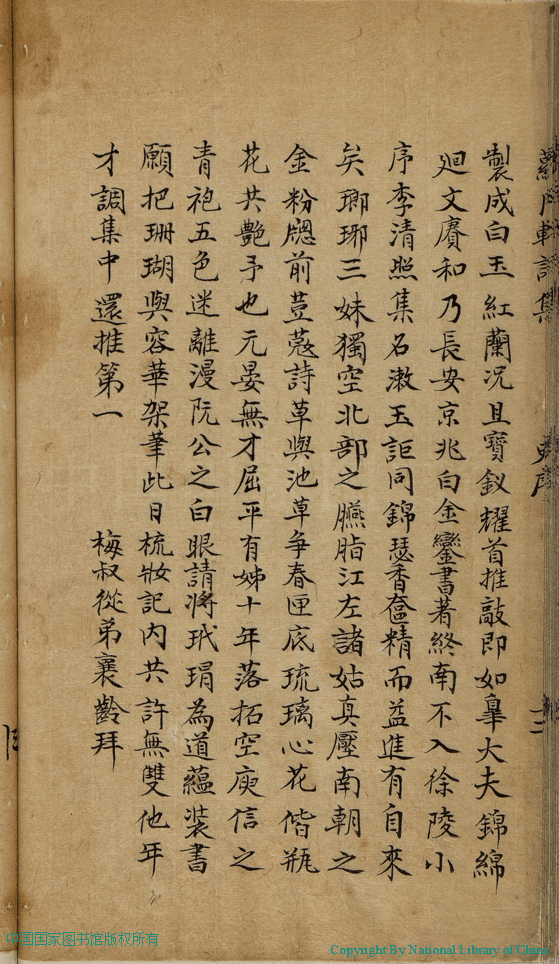 製成白玉紅蘭况且寶釵耀首推敲即如皐大夫錦綿
廻文賡和乃長安京兆白金鑾書著終南不入徐陵小
序李清照集名漱玉詎同錦瑟香奩精而益進有自來
矣瑯琊三妹獨空北部之臙脂江左諸姑真壓南朝之
金粉牕前荳蔻詩草與池草争春匣底琉璃心花偕瓶
花共艷予也元晏無才屈平有姊十年落拓空庾信之
青袍五色迷離漫阮公之白眼請將玳瑁為道蘊裝書
願把珊瑚與容華架筆此日梳妝記内共許無雙他年
才調集中還推第一　　梅叔從弟襄齡拜
中国国家图书馆版权所有
Copyright By National Library of China